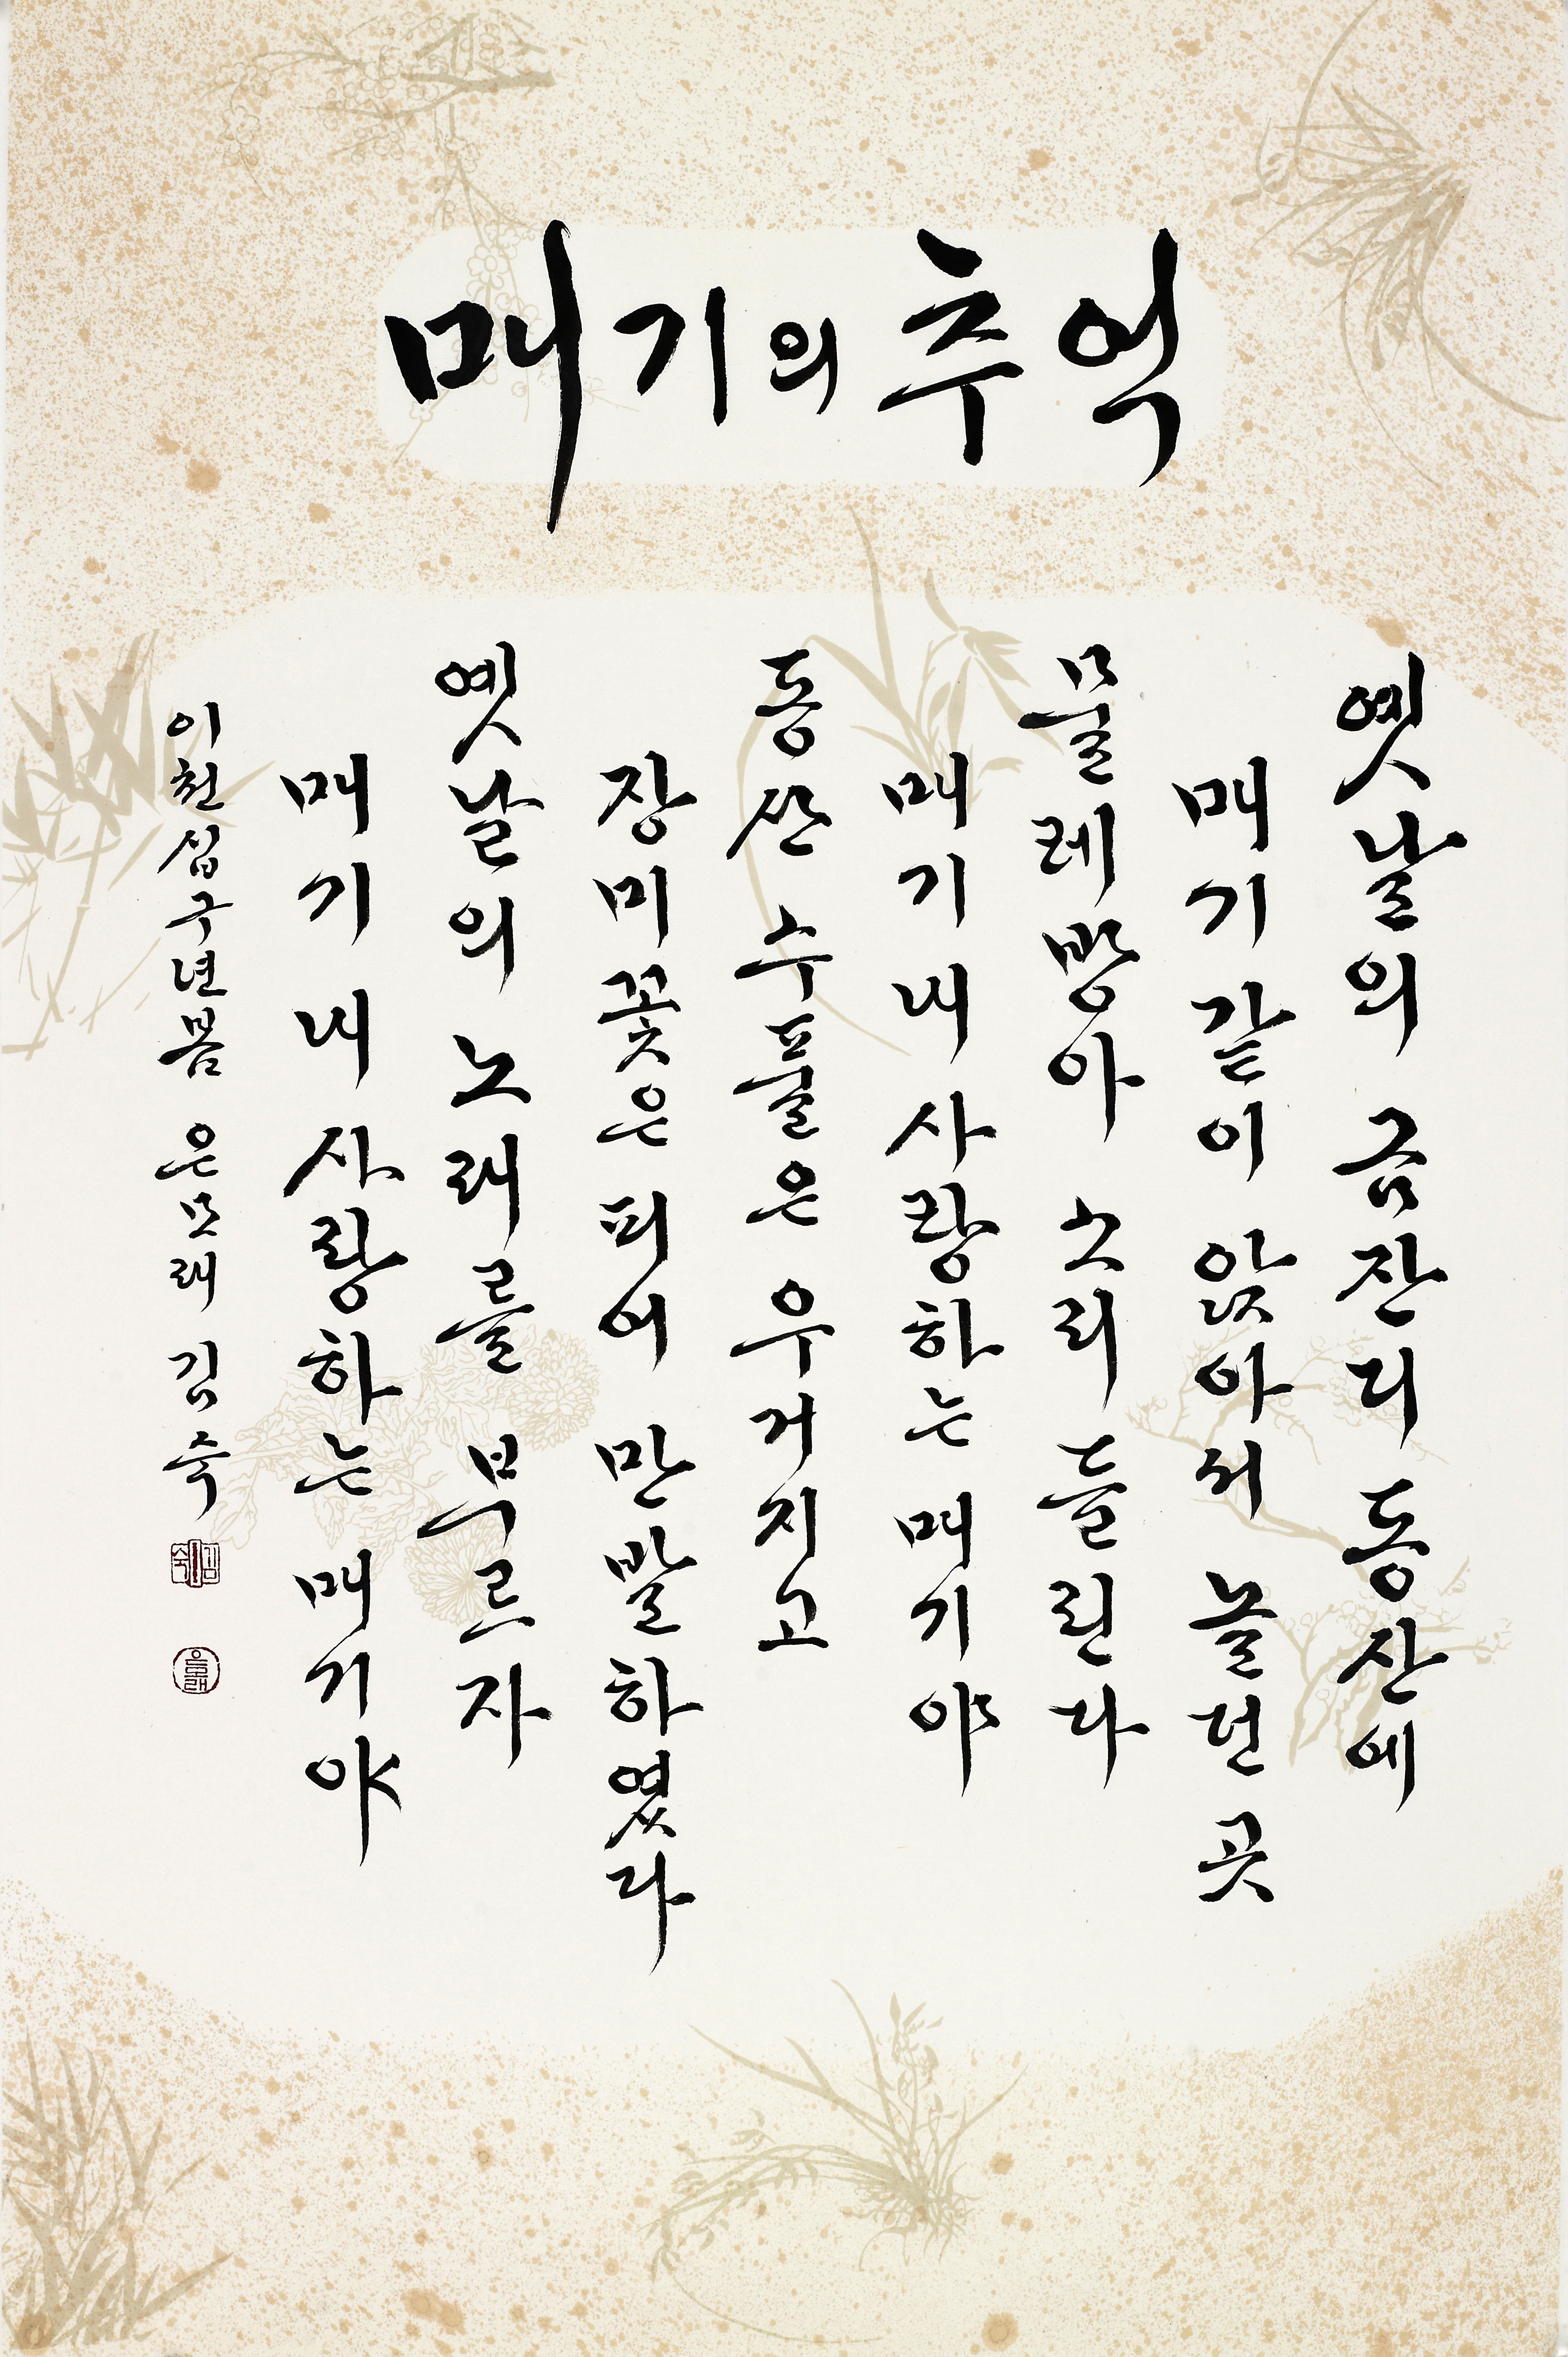 매기의 추억
옛날의 금잔디 동산에
매기 같이 앉아서 놀던 곳
물레방아 소리 들린다
매기 내 사랑하는 매기야
동산 수풀은 우거지고
장미꽃은 피어 만발하였다
옛날의 노래를 부르자
매기 내 사랑하는 매기야
이천십구년 봄 은모래 김숙